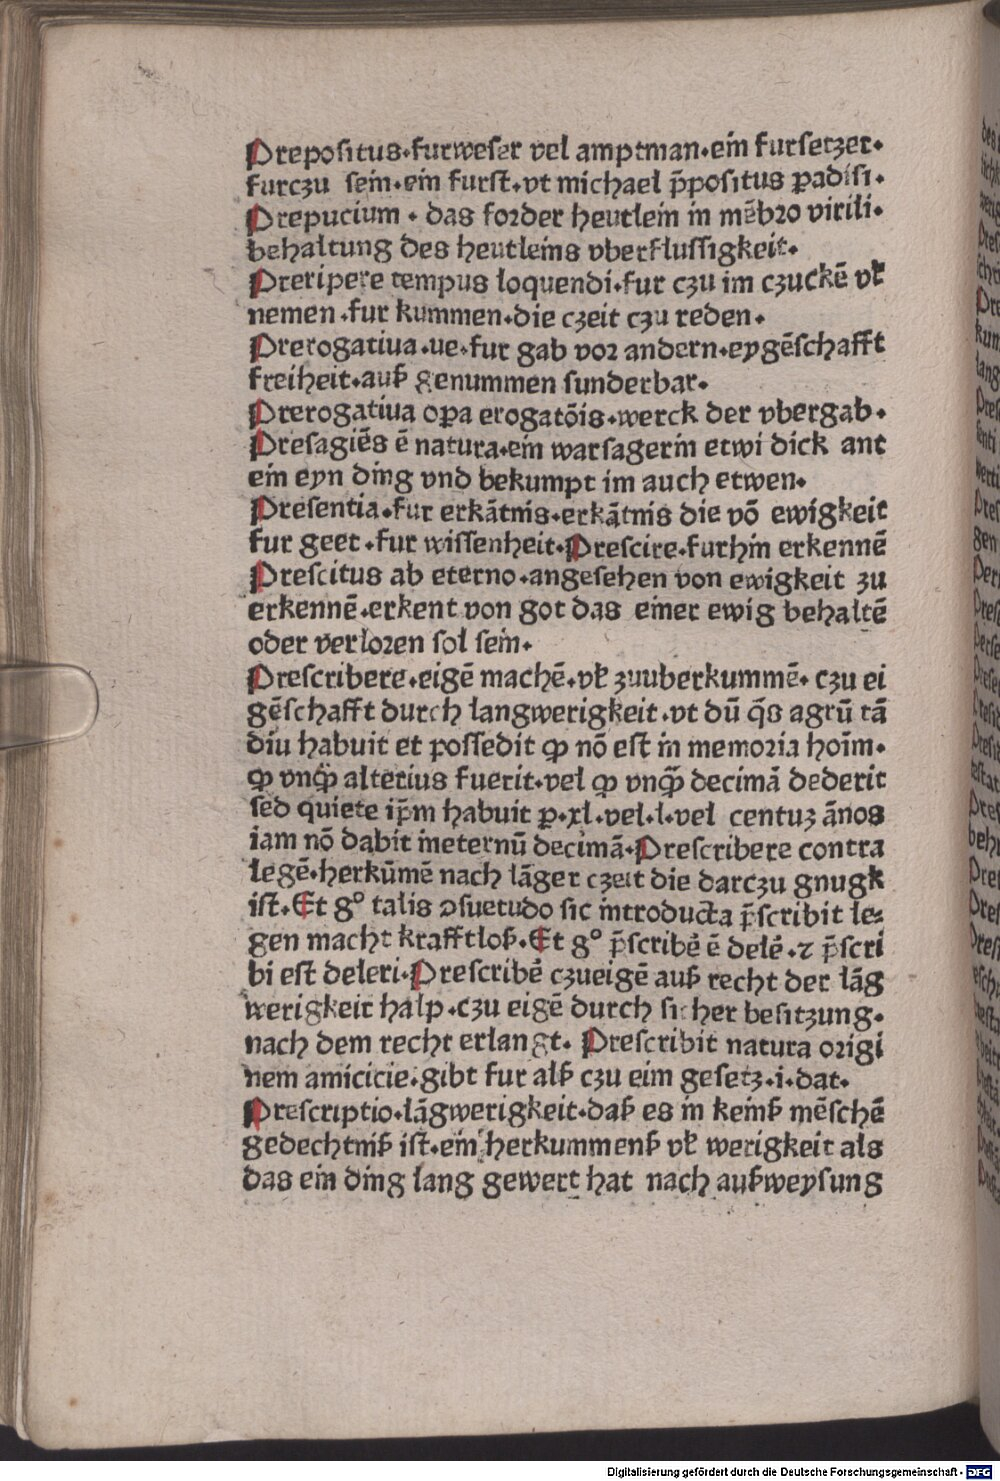 Prepositus·furweser vel amptman·ein fursetzer·
furczu sein·ein furst·vt michael p̄positus padisi·
Prepucium·das forder heutlein in mēbꝛo virili·
behaltung des heutleins vberflussigkeit·
Preripere tempus loquendi·fur czu im czuckē vł
nemen·fur kummen·die czeit czu reden·
Prerogatiua·ue·fur gab voꝛ andern·eygēschafft
freiheit·auß genummen sunderbar·
Prerogatiua oꝑa erogatōis·werck der vbergab·
Presagiēs ē natura·ein warsagerin etwi dick ant
ein eyn ding vnd bekumpt im auch etwen·
Presentia·fur erkātnis·erkātnis die vō ewigkeit
fur geet·fur wissenheit·Prescire·furhin erkennē
Prescitus ab eterno·angesehen von ewigkeit zu
erkennē·erkent von got das einer ewig behaltē
oder verloꝛen sol sein·
Prescribere·eigē machē·vł zuuberkummē·czu ei
gēschafft durch langwerigkeit·vt dū q̄s agrū tā
diu habuit et possedit ꝙ nō est in memoꝛia hoīm·
ꝙ vnq̄ȝ alterius fuerit·vel ꝙ vnq̄ȝ decimā dederit
sed quiete ip̄m habuit ꝑ·xl·vel·l·vel centuz ānos
iam nō dabit ineternū decimā·Prescribere contra
legē·herkūmē nach lāger czeit die darczu gnugk
ist·Et gº talis ꝯsuetudo sic introducta p̄scribit le⸗
gen macht krafftloß·Et gº p̄scribē ē delē·⁊ p̄scri
bi est deleri·Prescribē czueigē auß recht der lāg
werigkeit halp·czu eigē durch sicher besitzung·
nach dem recht erlangt· Prescribit natura oꝛigi
nem amicicie·gibt fur alß czu eim gesetz·i·dat·
Prescriptio·lāgwerigkeit·daß es in keinß mēschē
gedechtniß ist·ein herkummenß vł werigkeit als
das ein ding lang gewert hat nach außweysung
Digitalisierung gefördert durch die Deutsche Forschungsgemeinschaft - DFG